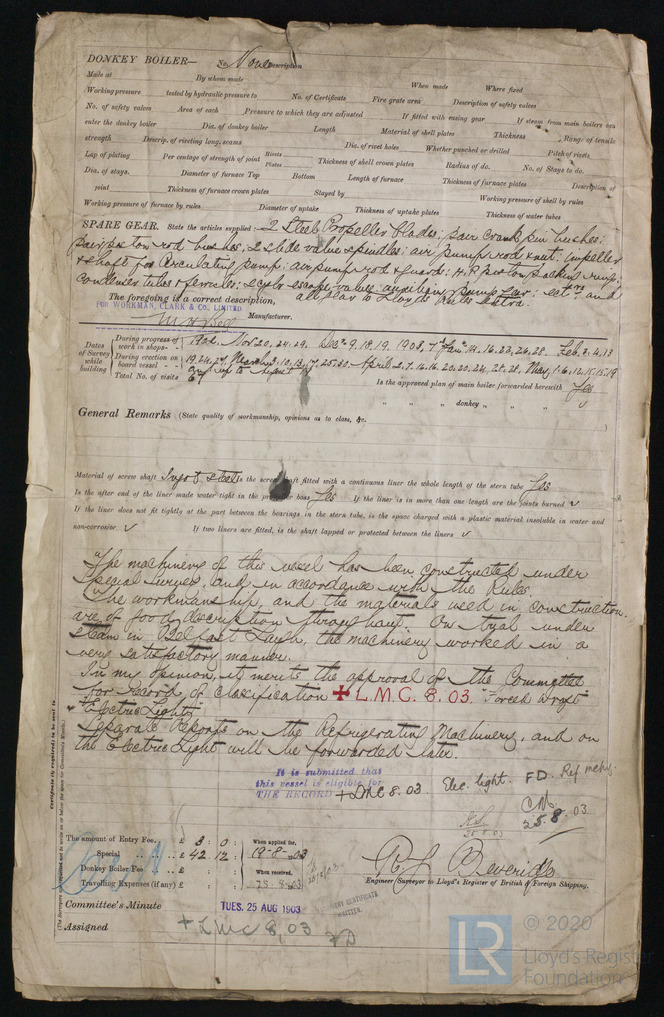 DONKEY BOILER— No. None Description
Made at By whom made When made Where fixed
Working pressure tested by hydraulic pressure to No. of Certificate Fire grate area Description of safety valves
No. of safety valves Area of each Pressure to which they are adjusted If fitted with easing gear If steam from main boilers can
enter the donkey boiler Dia. of donkey boiler Length Material of shell plates Thickness Range of tensile
strength Descrip. of riveting long. seams Dia. of rivet holes Whether punched or drilled Pitch of rivets
Lap of plating Per centage of strength of joint Rivets Plates Thickness of shell crown plates Radius of do. No. of Stays to do.
Dia. of stays. Diameter of furnace Top Bottom Length of furnace Thickness of furnace plates Description of
joint Thickness of furnace crown plates Stayed by Working pressure of shell by rules
Working pressure of furnace by rules Diameter of uptake Thickness of uptake plates Thickness of water tubes
SPARE GEAR. State the articles supplied:— 2 Steel Propeller blades: pair crank pin bushes:
pair piston rod bushes, 2 slide valve spindles: air pump rod & nut: impeller
& shaft for circulating pump: air pump rod & guard: H.P. piston packing ring:
condenser tubes & ferrules: escape valve: auxiliary pump gear: and
all gear to Lloyds rules extra.
The foregoing is a correct description,
FOR WORKMAN, CLARK & CO., LIMITED
Manufacturer.
Dates of Survey while building
During progress of work in shops - - 1902. Nov. 20, 24, 29. Dec. 9. 18. 19. 1903, Jan. 14. 16. 22, 26, 28. Feb. 2. 4. 13
During erection on board vessel - - 19. 24. 27, March 3. 10. 13. 17. 25. 30. April 2. 7. 16. 20. 24. 28. May, 1. 6. 12. 15. 19
Total No. of visits
Is the approved plan of main boiler forwarded herewith Yes
" " " donkey " " "
General Remarks (State quality of workmanship, opinions as to class, &c.
Material of screw shaft Ingot steel Is the screw shaft fitted with a continuous liner the whole length of the stern tube Yes
Is the after end of the liner made water tight in the propeller boss Yes If the liner is in more than one length are the joints burned ✓
If the liner does not fit tightly at the part between the bearings in the stern tube, is the space charged with a plastic material insoluble in water and
non-corrosive ✓ If two liners are fitted, is the shaft lapped or protected between the liners ✓
The machinery of this vessel has been constructed under
Special Survey, and in accordance with the Rules.
The workmanship, and the materials used in construction
are of good description throughout. On trial under
steam in Belfast Lough, the machinery worked in a
very satisfactory manner.
In my opinion, it merits the approval of the Committee
for record of Classification + L.M.C. 8. 03. "Forced Draft
" Electric Light"
Separate Reports on the Refrigerating Machinery, and on
the Electric Light will be forwarded later.
It is submitted that
this vessel is eligible for
THE RECORD + LMC 8. 03 Elec. light. FD. Ref mchy.
25. 8. 03
25.8.03
Certificate (if required) to be sent to
The amount of Entry Fee. . £ 3 : 0 : When applied for,
Special . . . . £ 42 : 12 : 19-8-03
Donkey Boiler Fee . . . £ : : When received,
Travelling Expenses (if any) £ : : 25.8.03
R. J. Beveridge
Engineer Surveyor to Lloyd's Register of British & Foreign Shipping.
Committee's Minute TUES. 25 AUG 1903
CERTIFICATE WRITTEN.
Assigned + LMC 8, 03 FD
LR © 2020
Lloyd's Register
Foundation